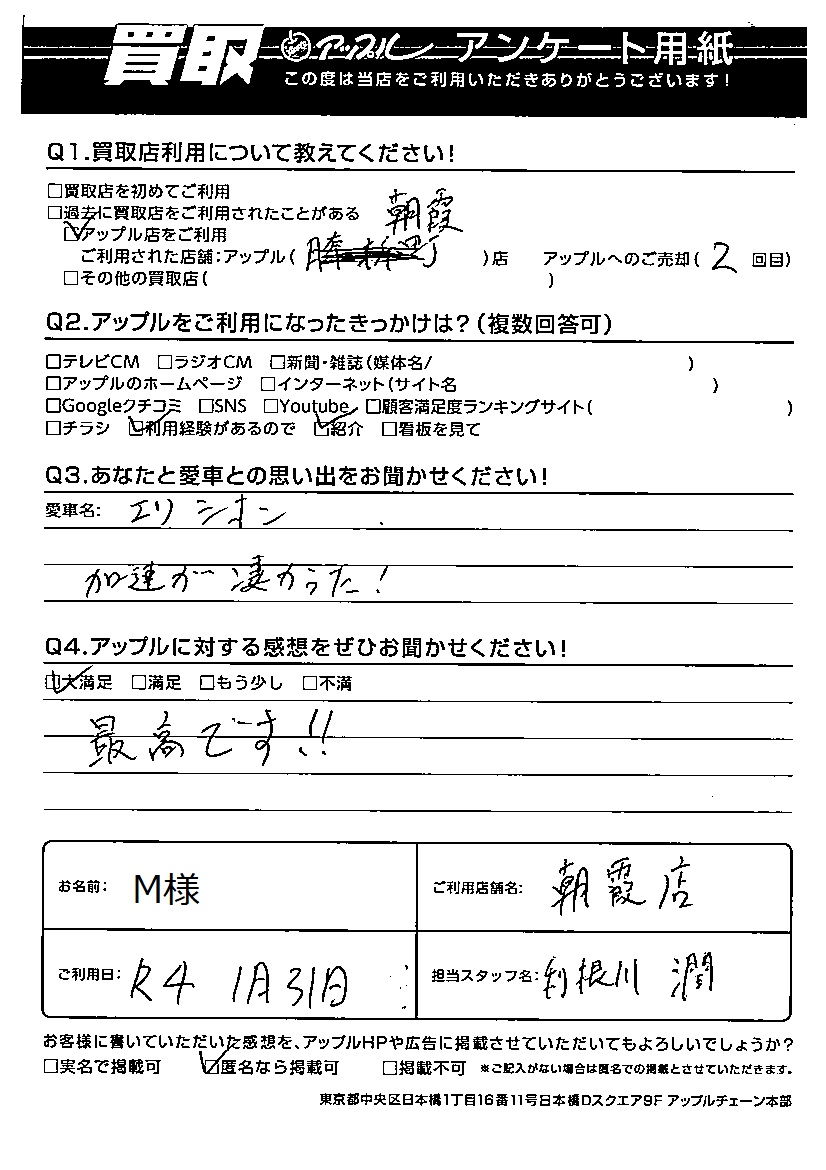 買取 アップル アンケート用紙
この度は当店をご利用いただきありがとうございます！
Q1.買取店利用について教えてください！
□買取店を初めてご利用
□過去に買取店をご利用されたことがある 朝霞
☑アップル店をご利用
ご利用された店舗：アップル( )店 アップルへのご売却( 2 回目)
□その他の買取店( )
Q2.アップルをご利用になったきっかけは？(複数回答可)
□テレビCM □ラジオCM □新聞・雑誌(媒体名/ )
□アップルのホームページ □インターネット(サイト名 )
□Googleクチコミ □SNS □Youtube □顧客満足度ランキングサイト( )
□チラシ ☑利用経験があるので ☑紹介 □看板を見て
Q3.あなたと愛車との思い出をお聞かせください！
愛車名： エリシオン
加速が凄かった！
Q4.アップルに対する感想をぜひお聞かせください！
☑大満足 □満足 □もう少し □不満
最高です!!
お名前： M様 ご利用店舗名： 朝霞店
ご利用日： R4 1月31日 担当スタッフ名： 利根川 潤
お客様に書いていただいた感想を、アップルHPや広告に掲載させていただいてもよろしいでしょうか？
□実名で掲載可 ☑匿名なら掲載可 □掲載不可 ※ご記入がない場合は匿名での掲載とさせていただきます。
東京都中央区日本橋1丁目16番11号日本橋Dスクエア9F アップルチェーン本部